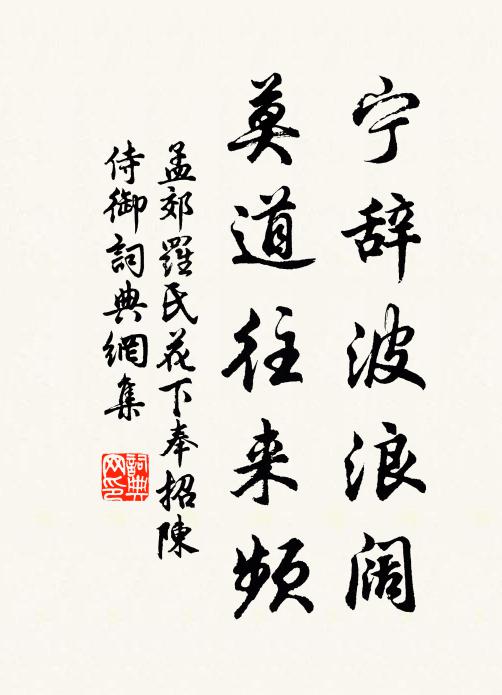 宁辞波浪阔
莫道往来频
孟郊羅氏花下奉招陳
侍御詞典網集
詞典
网印